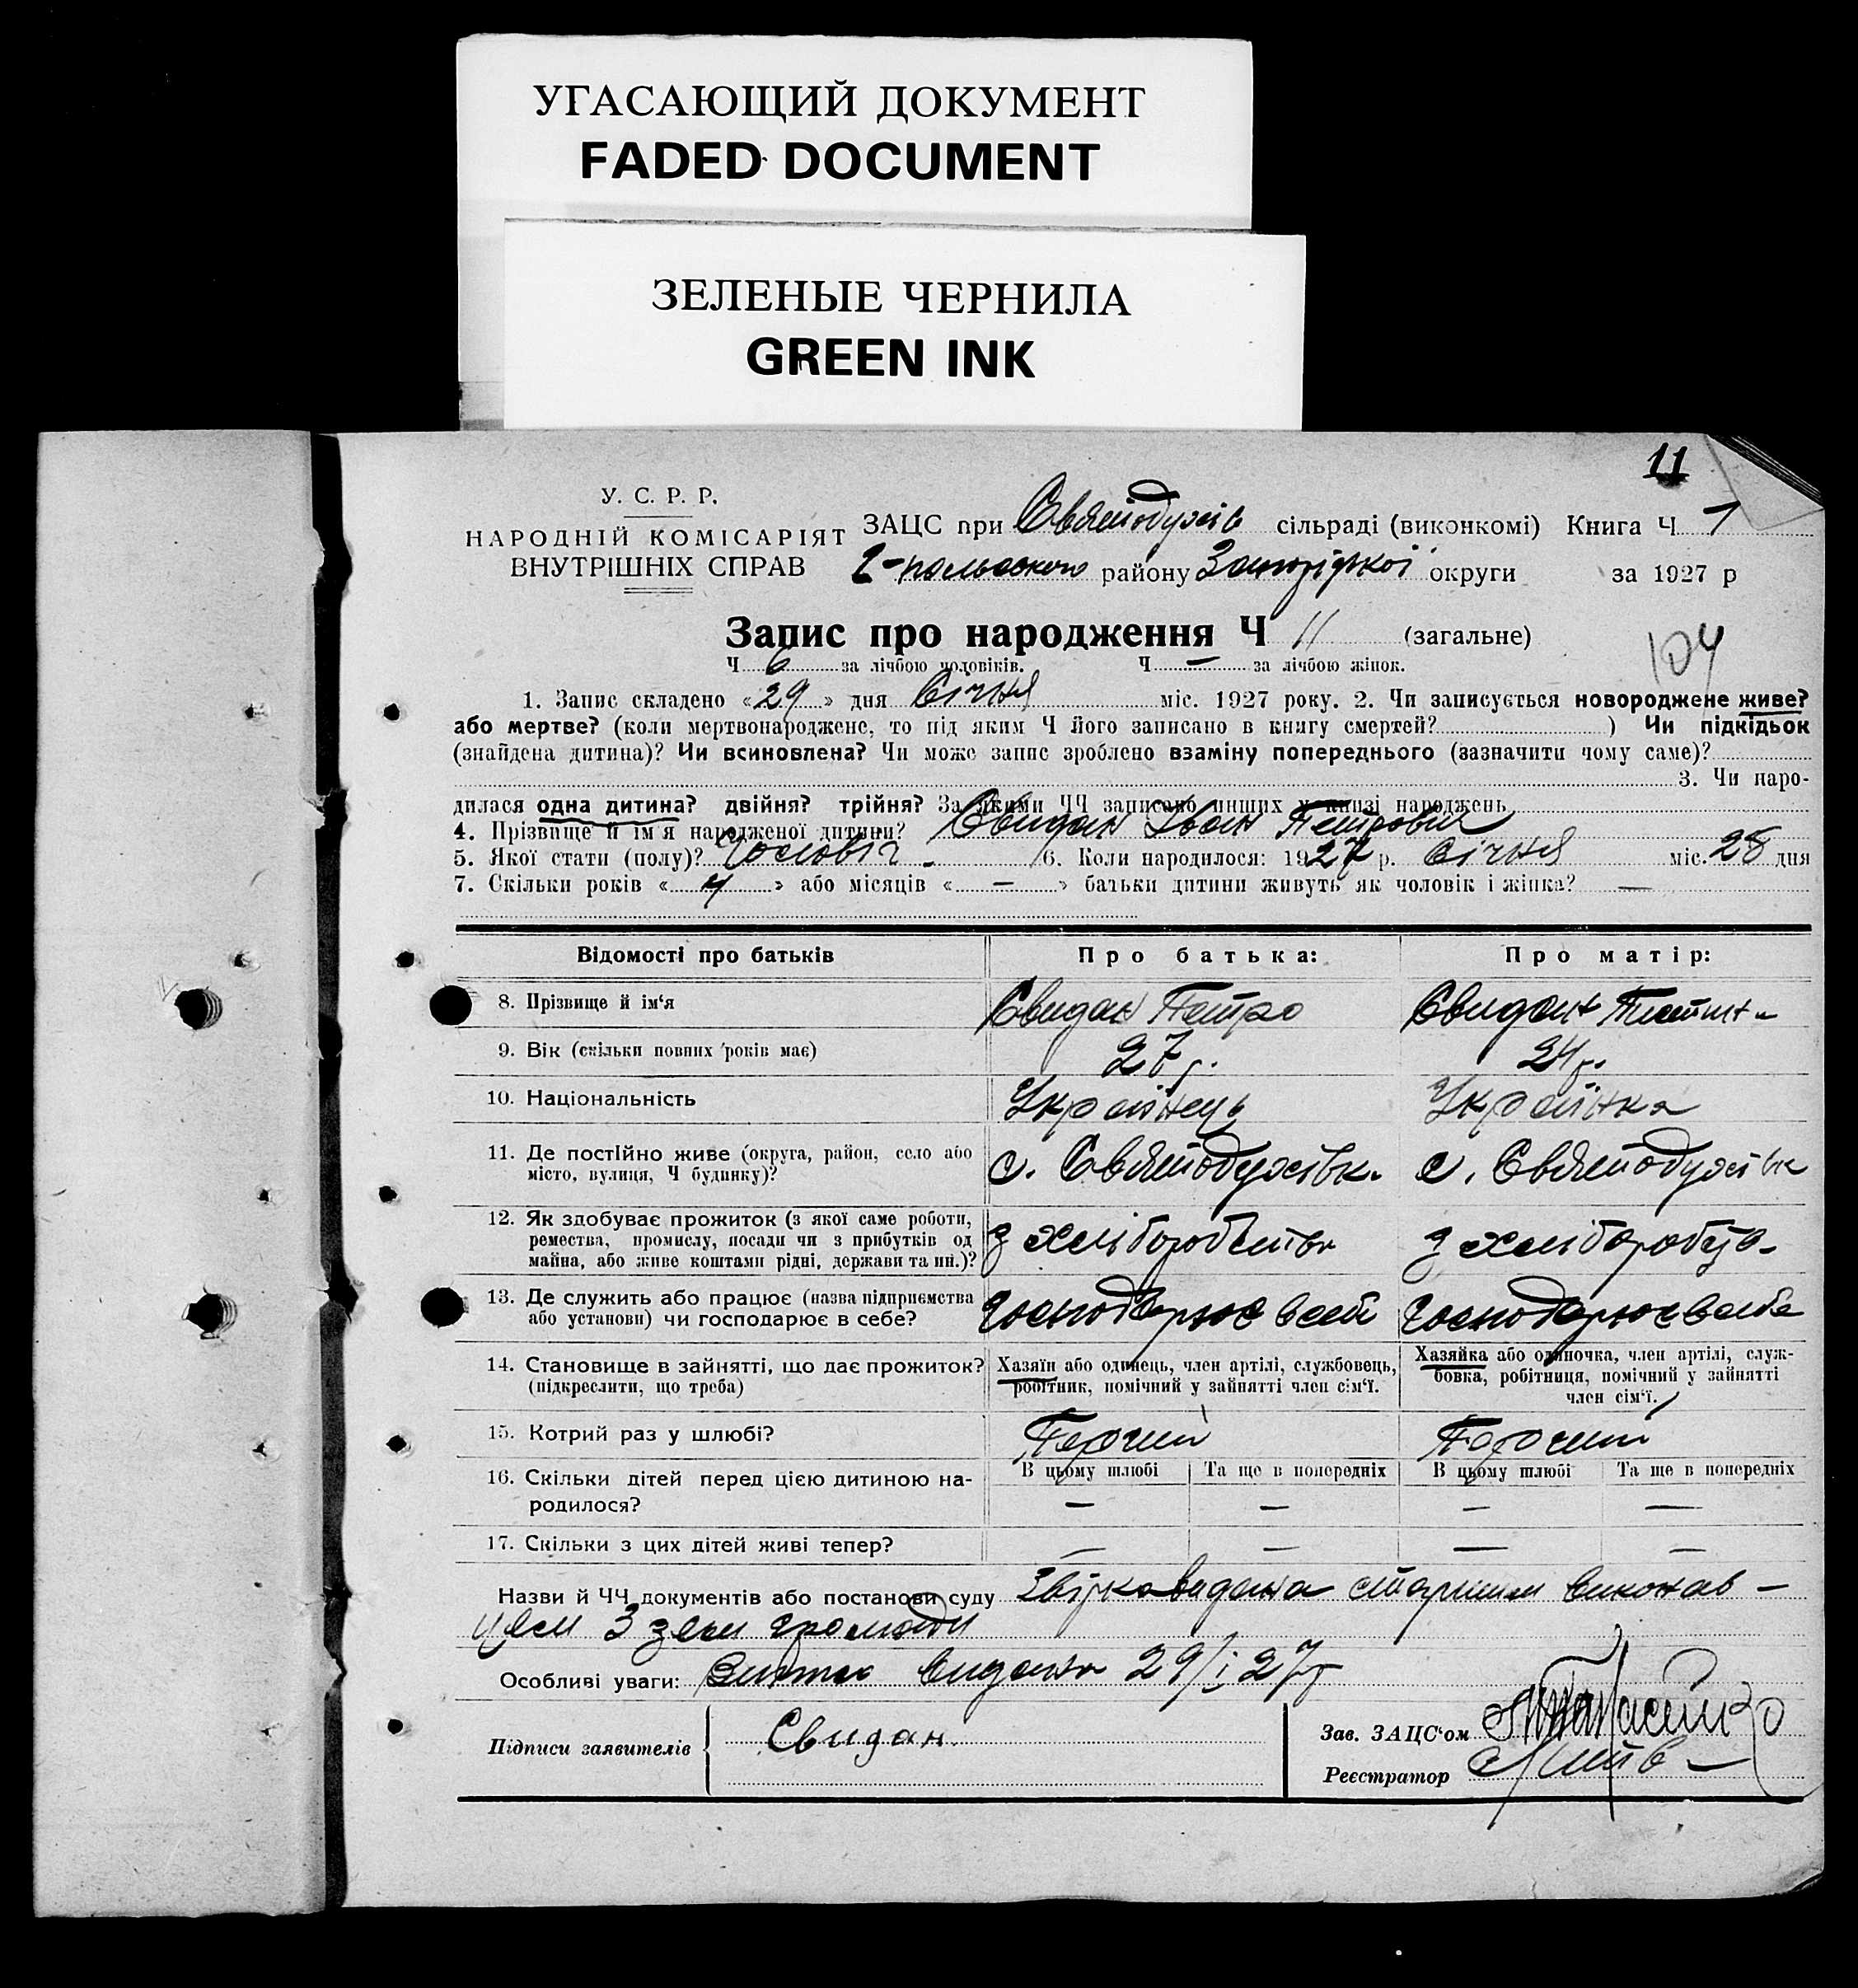 УГАСАЮЩИЙ ДОКУМЕНТ
FADED DOCUMENT
ЗЕЛЕНЫЕ ЧЕРНИЛА
GREEN INK
11
У. С. Р. Р.
НАРОДНІЙ КОМІСАРІЯТ
ВНУТРІШНІХ СПРАВ
ЗАЦС при Святодухів сільраді (виконкомі) Книга Ч 1
г-польского району Запорізької округи за 1927 р
Запис про народження Ч 11 (загальне)
104
Ч 6 за лічбою чоловіків. Ч — за лічбою жінок.
1. Запис складено «29» дня Січня міс. 1927 року. 2. Чи записується новороджене живе?
або мертве? (коли мертвонароджене, то під яким Ч його записано в книгу смертей? ) Чи підкідьок
(знайдена дитина)? Чи всиновлена? Чи може запис зроблено взаміну попереднього (зазначити чому саме)?
3. Чи наро-
дилася одна дитина? двійня? трійня? За якими ЧЧ записано инших у книзі народжень
4. Прізвище й ім'я народженої дитини? Свидан Іван Петрович
5. Якої стати (полу)? Чоловіч. 6. Коли народилося: 1927 р. Січня міс. 28 дня
7. Скільки років « 4 » або місяців « — » батьки дитини живуть як чоловік і жінка? —
Відомості про батьків Про батька: Про матір:
8. Прізвище й ім'я Свидан Петро Свидан
9. Вік (скільки повних років має) 27 р. 24 р.
10. Національність Українець Українка
11. Де постійно живе (округа, район, село або
місто, вулиця, Ч будинку)? с. Святодухівк. с. Святодухівк
12. Як здобуває прожиток (з якої саме роботи,
ремества, промислу, посади чи з прибутків од
майна, або живе коштами рідні, держави та ин.)? З хліборобства з хлібороб
13. Де служить або працює (назва підприємства
або установи) чи господарює в себе? Господарює в себе Господарює в себе
14. Становище в зайнятті, що дає прожиток?
(підкреслити, що треба)
Хазяїн або одинець, член артілі, службовець,
робітник, помічний у зайнятті член сім'ї.
Хазяйка або одиночка, член артілі, служ-
бовка, робітниця, помічний у зайнятті
член сім'ї.
15. Котрий раз у шлюбі? Перший Перший
16. Скільки дітей перед цією дитиною на-
родилося?
В цьому шлюбі Та ще в попередніх В цьому шлюбі Та ще в попередніх
— — — —
17. Скільки з цих дітей живі тепер? — — — —
Назви й ЧЧ документів або постанови суду Звірка видана старшим виконав-
цем З зем громади
Особливі уваги: видана 29/I 27 р
Підписи заявителів Свидан.
Зав. ЗАЦС'ом
Реєстратор